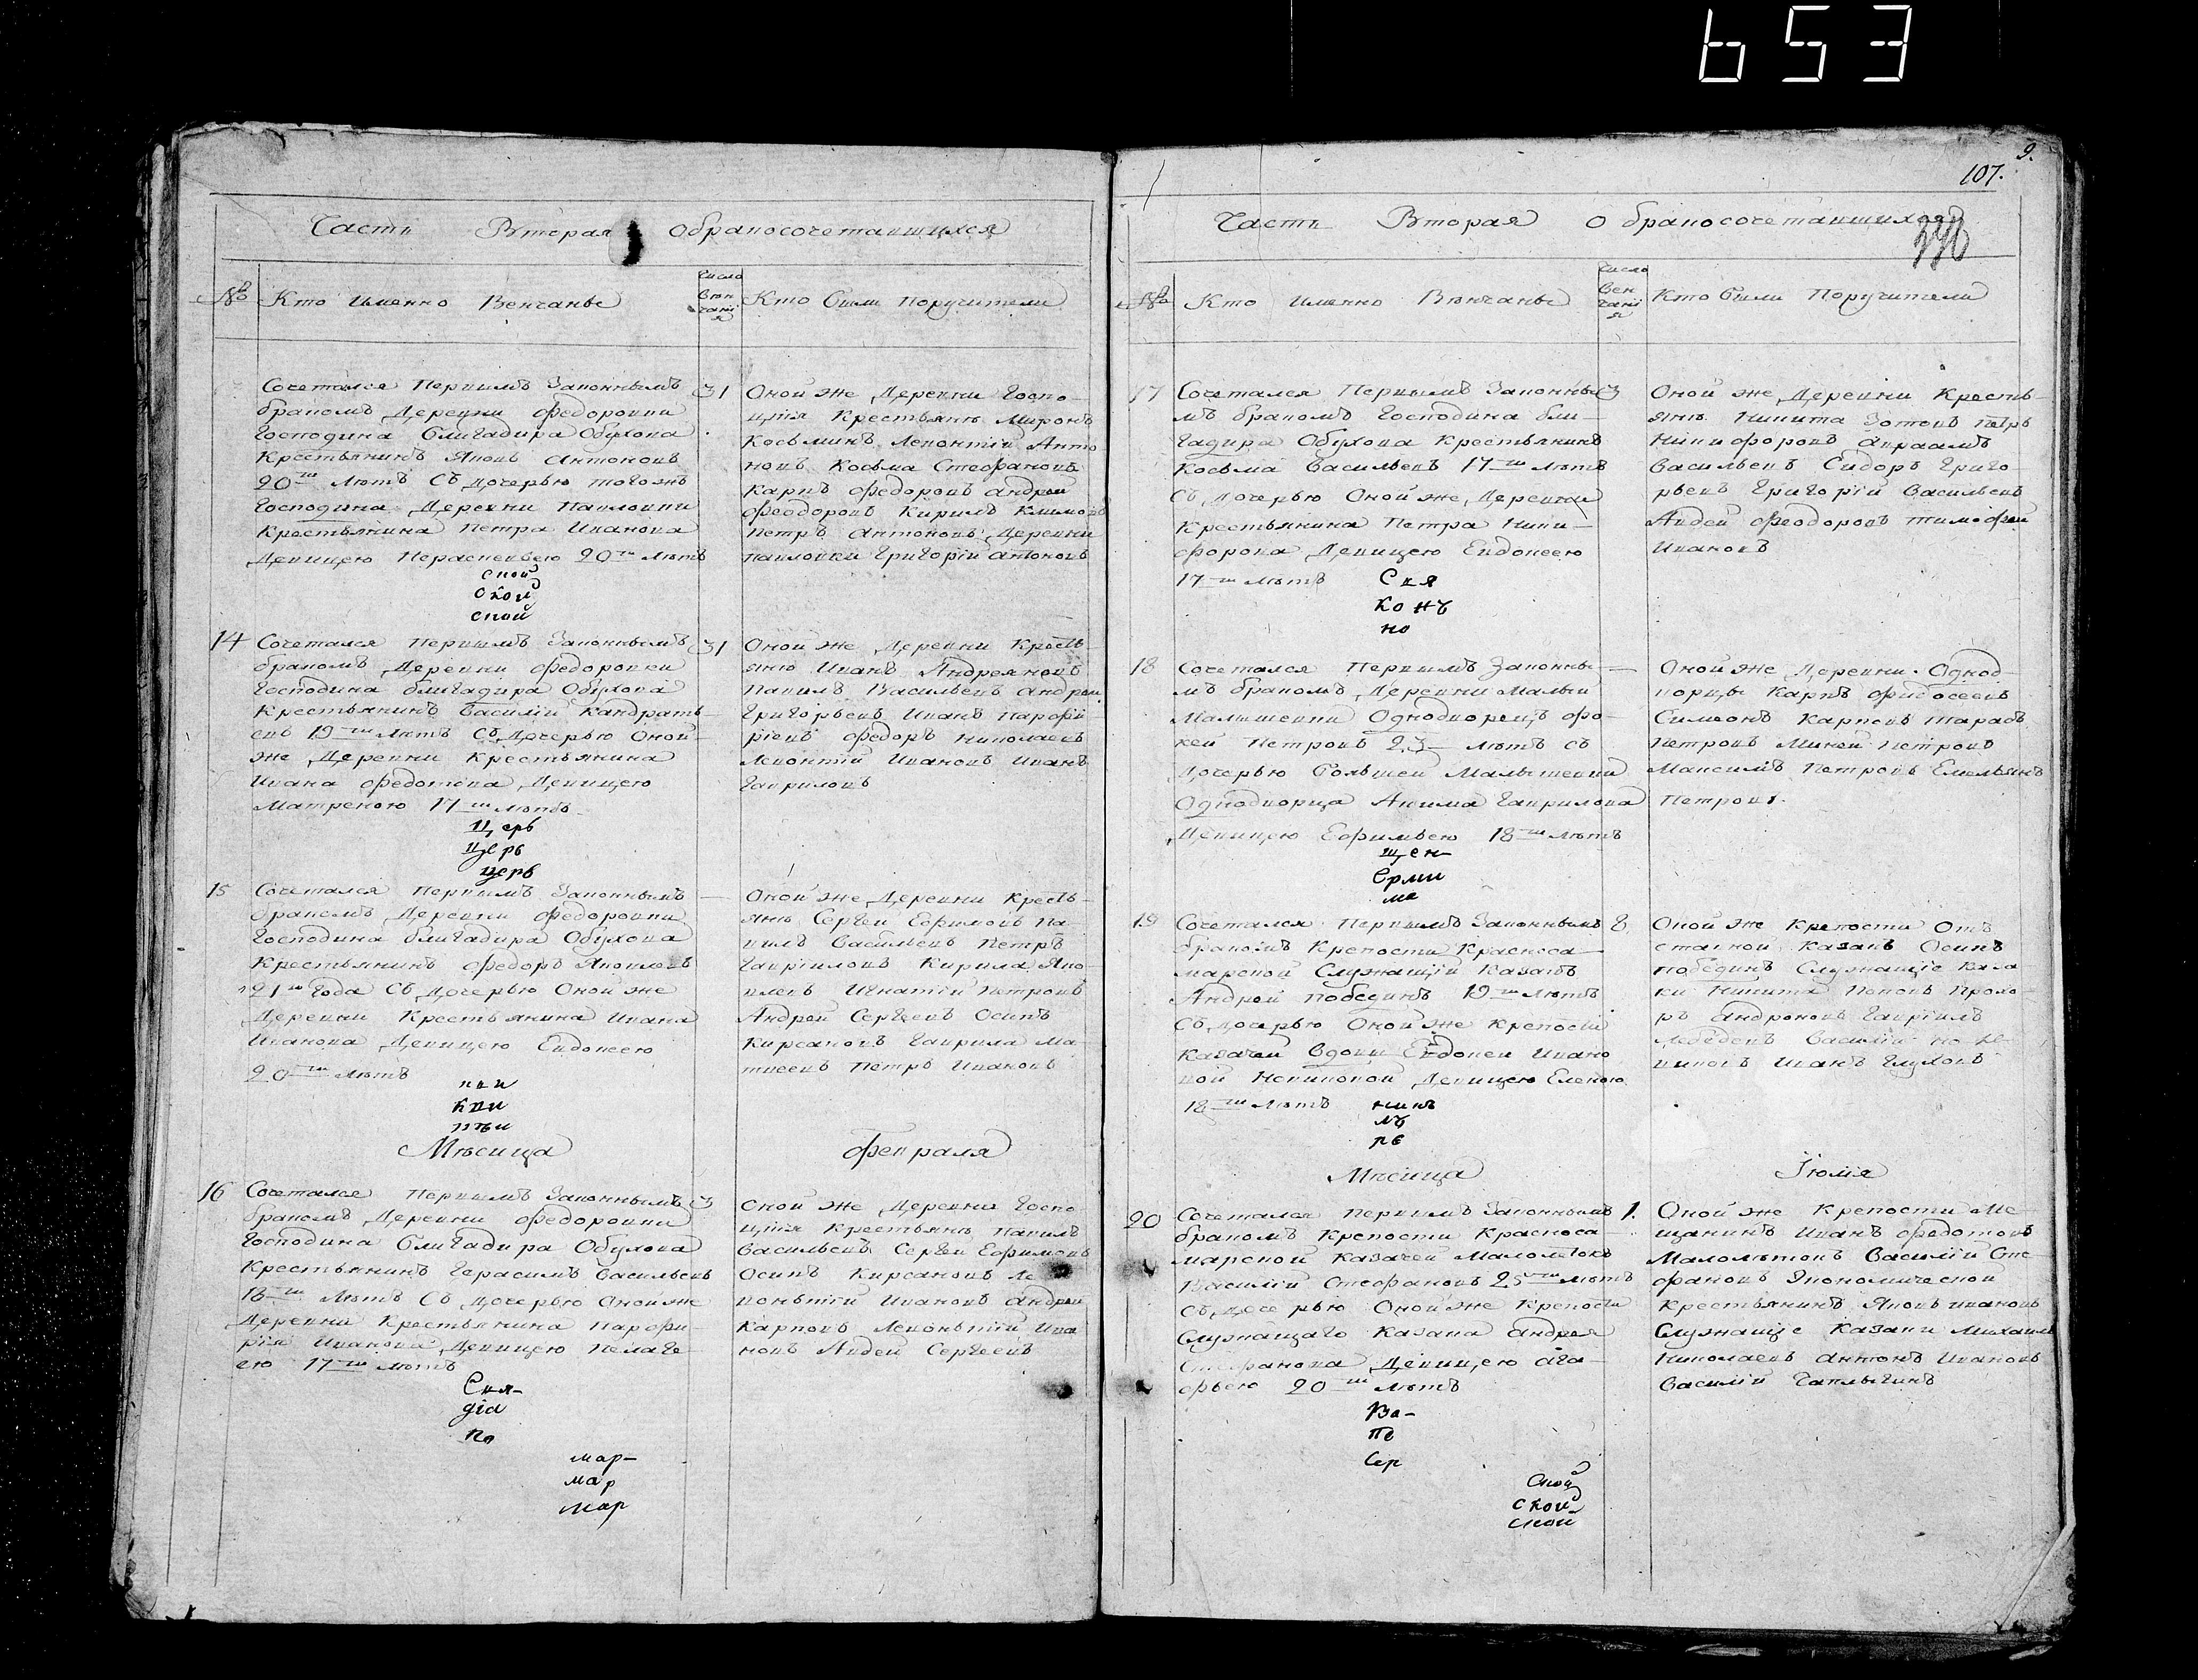 653
Часть Вторая о бракосочетавшихся
№ Кто именно Венчаны
Число
Вен
чані
я
Кто были поручители
Сочетался Первымъ Законнымъ
бракомъ Деревни Федоровки
Господина Бригадира Обухова
Крестьянинъ Яковъ Антоновъ
20ти лѣтъ Съ дочерью тогожъ
Господина Деревни Павловки
Крестьянина Петра Иванова
Девицею Параскевьею 20ти лѣтъ
31
Оной же Деревни Госпо-
Крестьянъ Миронъ
Косьминъ Леонтій Анто
новъ Косьма Стефановъ
Карпъ Федоровъ Андрей
Феодоровъ Кирилъ Климовъ
Петръ Антоновъ Деревни
Павловки Григорій Антоновъ
ской
ской
ской
14
Сочетался Первымъ Законнымъ
бракомъ Деревни Федоровки
Господина бригадира Обухова
Крестьянинъ Василій Кандрать-
евъ 19ти лѣтъ Съ Дочерью Оной-
же Деревни Крестьянина
Ивана Федотова Девицею
Матреною 17ти лѣтъ
31
Оной же Деревни Кресть-
яне Иванъ Андреяновъ
Васильевъ Андрей
Григорьевъ Иванъ Парфи-
ріевъ Федоръ Николаевъ
Леонтій Ивановъ Иванъ
Гавриловъ
Церь
Церь
церь
15
Сочетался Первымъ Законнымъ
бракомъ Деревни Федоровки
Господина бригадира Обухова
Крестьянинъ Федоръ Яковлевъ
21го года Съ Дочерью Оной же
Деревни Крестьянина Ивана
Иванова Девицею Евдокеею
20ти лѣтъ
—
Оной же Деревни Кресть-
яне Сергей Ефимовъ
Васильевъ Петръ
Гавриловъ Кирила Яко-
влевъ Игнатій Петровъ
Андрей Сергеевъ Осипъ
Кирсановъ Гаврила Ма-
твеевъ Петръ Ивановъ
кви
Мѣсяца Февраля
16
Сочетался Первымъ Законнымъ
бракомъ Деревни Федоровки
Господина Бригадира Обухова
Крестьянинъ Герасимъ Васильевъ
18ти Лѣтъ Съ дочерью Оной же
Деревни Крестьянина Парфи-
рія Иванова Девицею Пелаге-
ею 17ти лѣтъ
3
Оной же Деревни Госпо-
Крестьяне
Васильевъ Сергей Ефимовъ
Осипъ Кирсановъ Ле
Ивановъ Андрей
Карповъ Ива
новъ Авдей Сергеевъ
Свя-
по
мар-
мар
мар
9.
107.
Часть Вторая о бракосочетавшихся
№ Кто именно Венчаны
Число
Вен
чані
я
Кто были Поручители
17
Сочетался Первымъ Законны-
мъ бракомъ Господина бри-
гадира Обухова Крестьянинъ
Косьма Васильевъ 17ти лѣтъ
Съ дочерью Оной же Деревни
Крестьянина Петра Ники-
форова Девицею Евдокеею
17ти лѣтъ
3
Оной же Деревни Кресть-
яне Никита Зотовъ Петръ
Никифоровъ Авраамъ
Васильевъ Сидоръ Григо-
рьевъ Григорій Васильевъ
Авдей Феодоровъ Тимофей
Ивановъ
Свя
Конъ
но
18
Сочетался Первымъ Законны-
мъ бракомъ Деревни Малый
Малышевки Однодворецъ Фо-
кей Петровъ 23 лѣтъ съ
Дочерью Большей Малышевки
Однодворца Акима Гаврилова
Девицею Ефимьею 18ти лѣтъ
—
Оной же Деревни Однод-
ворцы Карпъ Федосеевъ
Симеонъ Карповъ Тарасъ
Петровъ Миней Петровъ
Максимъ Петровъ Емельянъ
Петровъ.
щен-
Ерми
19
Сочетался Первымъ Законнымъ
бракомъ Крепости Красноса-
марской Служащій Казакъ
Андрей Победимъ 19ти лѣтъ
Съ дочерью Оной же Крепости
Казачей Вдовы Евдокеи Ивано
вой Девицею Еленою
18ти лѣтъ
8
Оной же Крепости Отъ
ставной Казакъ Осипъ
Победимъ Служащіе Каза
ки Никита Поповъ Прохо-
ръ Андроновъ Гавріилъ
Лебедевъ Василій
Иванъ Глуховъ
Мѣсяца Іюлія
20
Сочетался Первымъ Законнымъ
бракомъ Крепости Красноса-
марской Казачей Малолетокъ
Василій Стефановъ 25ти лѣтъ
Съ дочерью Оной же Крепости
Служащаго Казака Андрея
Стефанова Девицею Ага-
фьею 20ти лѣтъ
1.
Оной же Крепости Ме
щанинъ Иванъ Федотовъ
Малолѣтокъ Василій Сте
фановъ Экономической
Крестьянинъ Яковъ Ивановъ
Служащіе Казаки Михаилъ
Николаевъ Антонъ Ивановъ
Василій Чаплыгинъ
Ва-
Сер
ской
ской
ской